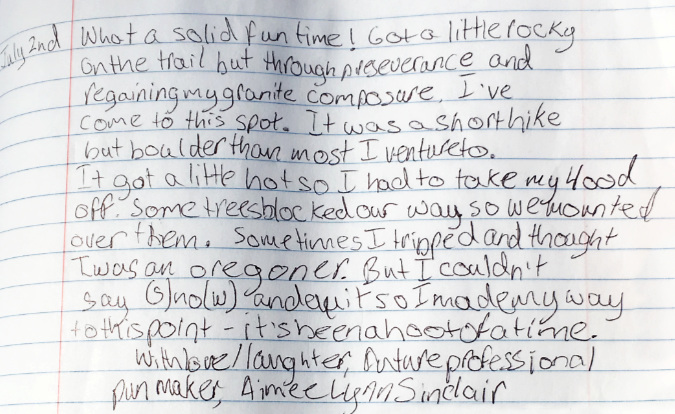 July 2nd What a solid fun time! Got a little rocky
on the trail but through preseverance and
regaining my granite composure, I've
come to this spot. It was a short hike
but boulder than most I venture to.
It got a little hot so I had to take my Hood
off. Some trees blocked our way so we mounted
over them. Sometimes I tripped and thought
I was an oregoner. But I couldn't
say (s)no(w) and quit so I made my way
to this point - it's been a hoot of a time.
With love/laughter, future professional
pun maker, Aimee Lynn Sinclair